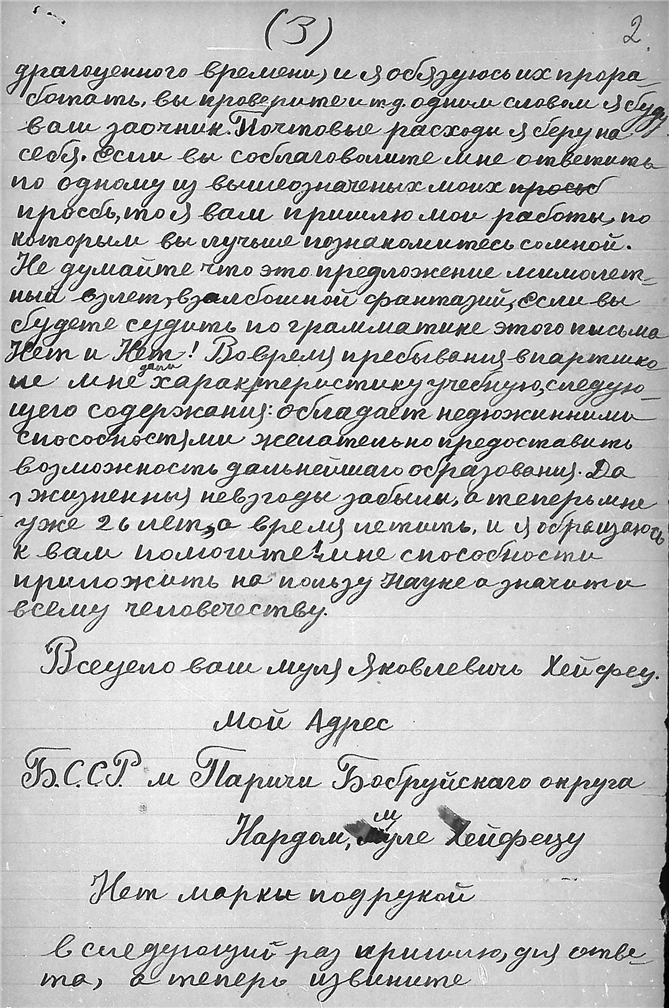 (3) 2.
драгоценного времени, и я обязуюсь их прора-
ботать, вы проверите и т.д. одним словом я буду
ваш заочник. Почтовые расходы я беру на
себя. Если вы соблаговолите мне ответить
по одному из вышеозначеных моих просьб
просьб, то я вам пришлю мои работы, по
которым вы лучше познакомитесь со мной.
Не думайте что это предложение мимолет-
ный взлет, взалбошной фантазий, если вы
будете судить по грамматике этого письма
Нет и Нет! Вовремя пребывания в партшко-
ле мне дали характеристику учебную, следую-
щего содержания: обладает недюжинными
способностями желательно предоставить
возможность дальнейшаго образования. Да
, жизненныя невзгоды забыли, а теперь мне
уже 26 лет, а время летить, и я обращаюсь
к вам помогите! мне способности
приложить на пользу Науке а значит и
всему человечеству.
Всецело ваш муля Яковлевичь Хейфец.
мой Адрес
Б.С.С.Р. м Паричи Бобруйскаго округа
Нардом, муле Хейфецу
Нет марки под рукой
в следующий раз пришлю, для отве-
та, а теперь извините